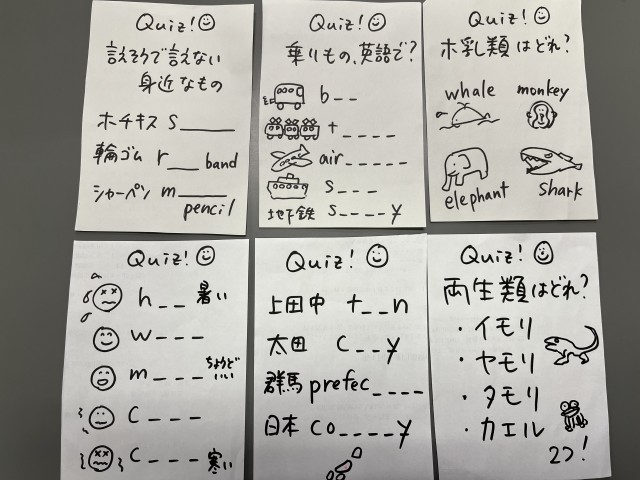 Quiz!
言えそうで言えない
身近なもの
ホチキス S______
輪ゴム r____ band
シャーペン m_____
pencil
Quiz!
乗りもの、英語で?
b _ _
t _ _ _ _
air _ _ _ _ _
s _ _ _
地下鉄 s _ _ _ _ y
Quiz!
ホ乳類はどれ?
whale monkey
elephant shark
Quiz!
h _ _ 暑い
w _ _ _
m _ _ _ ちょうど
いい
c _ _ _
c _ _ _ 寒い
Quiz!
上田中 t _ _ n
太田 c _ _ y
群馬 prefec _ _ _ _
日本 co _ _ _ _ y
Quiz!
両生類はどれ?
・イモリ
・ヤモリ
・タモリ
・カエル
2つ!